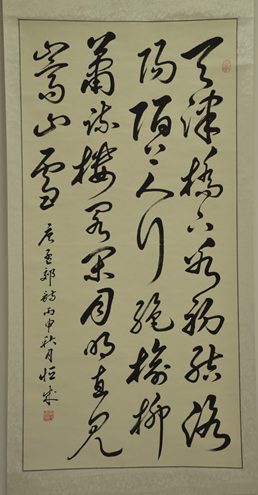 天津橋下冰初結洛
陽陌上人行絕榆柳
蕭疏樓閣閑月明直見
嵩山雪 唐孟郊詩丙申秋月恒